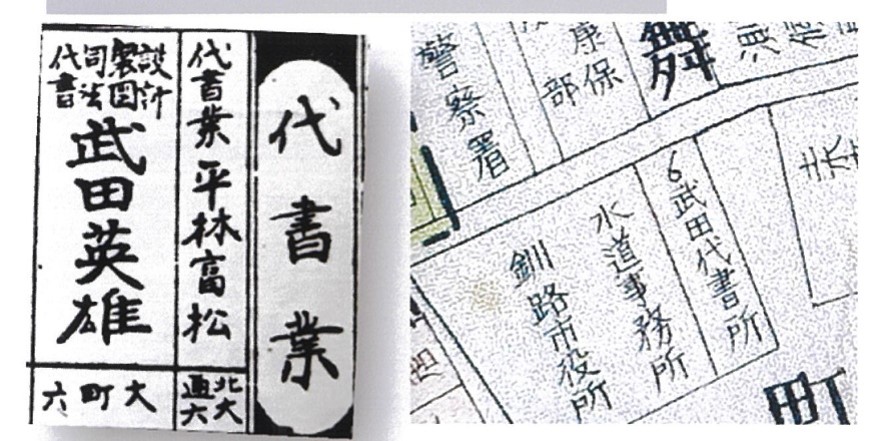 代書業
代書業 平林富松
北大通六
設計製図
司法代書
武田英雄
大町六
警察署
康保
部
舞
水道事務所
釧路市役所
6武田代書所
町